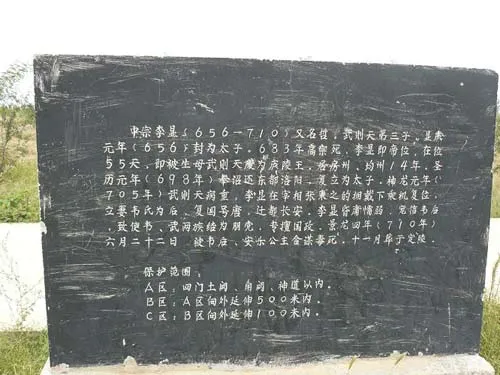 中宗李显（656—710）又名哲，武则天第三子。显庆
元年（656）封为太子。683年高宗死，李显即帝位，在位
55天，即被生母武则天废为庐陵王，居房州、均州14年，圣
历元年（698年）奉诏还东都洛阳，复立为太子。神龙元年（
705年）武则天病重，李显在宰相张柬之的拥戴下乘机复位，
立妻韦氏为后，复国号唐，迁都长安，李显昏肃懦弱，宠信韦后
，致使韦、武两族结为朋党，专擅国政，景龙四年（710年）
六月二十二日 被韦后、安乐公主合谋毒死，十一月葬于定陵。
保护范围：
A区：四门土阙、角阙、神道以内。
B区：A区向外延伸500米内。
C区：B区向外延伸100米内。